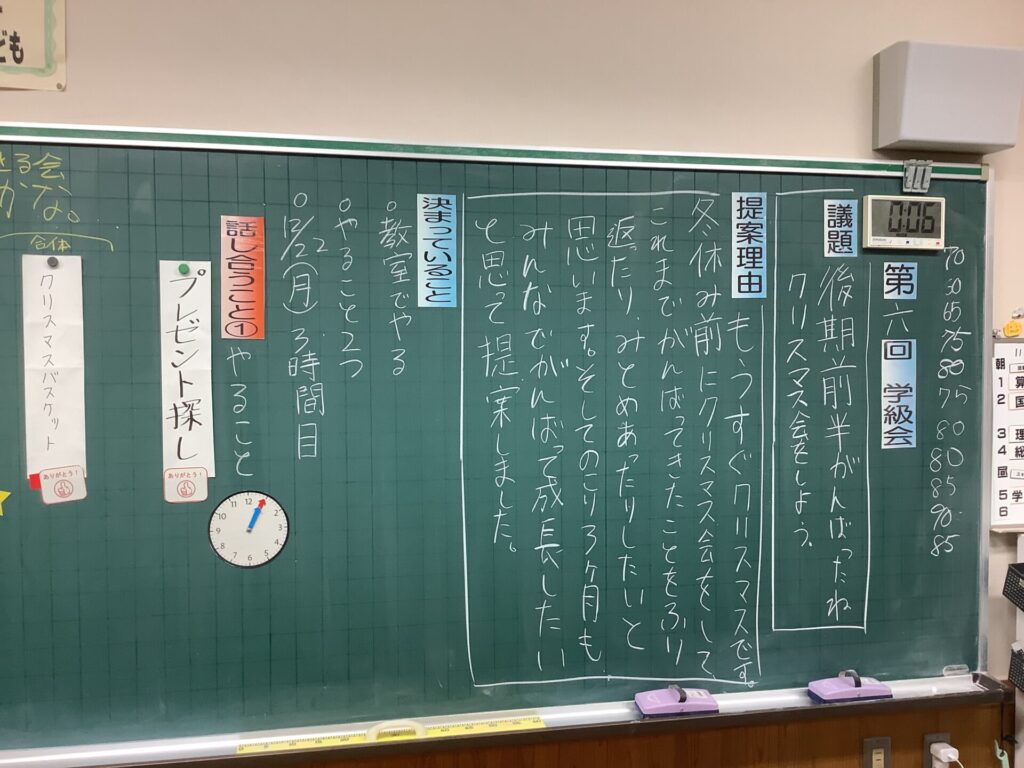 第六回 学級会
議題
後期前半がんばったね
クリスマス会をしよう。
提案理由
もうすぐクリスマスです。
冬休み前にクリスマス会をして
これまでがんばってきたことをふり
返ったり、みとめあったりしたいと
思います。そしてのこり3ヶ月も
みんなでがんばって成長したい
と思って提案しました。
決まっていること
○教室でやる
○やること2つ
○12/22(月)3時間目
話し合うこと①
やること
プレゼント探し
ありがとう!
クリスマスバスケット
ありがとう!
きる会
かな。
合体
ども
0:06
70
30
65
75
80
75
80
80
85
90
85
12
1
2
3
4
5
6
7
8
9
10
11
朝
1 算
2 国
3 理
4 総
5 学
6